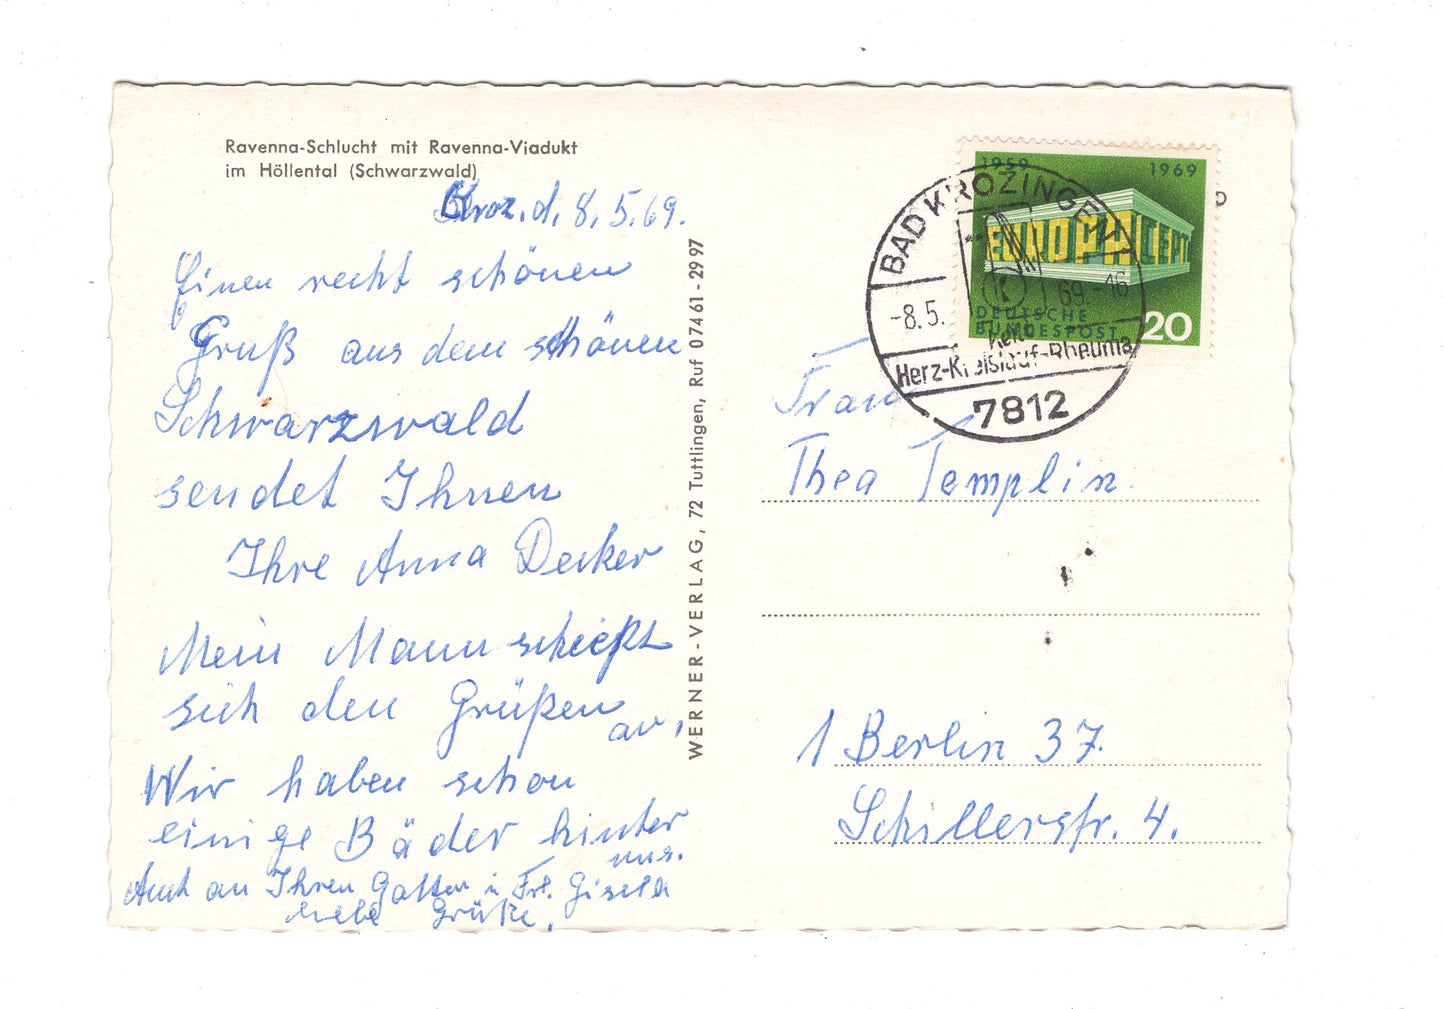 Ravenna-Schlucht mit Ravenna-Viadukt
im Höllental (Schwarzwald)
Kroz. d. 8. 5. 69.
Einen recht schönen
Gruß aus dem schönen
Schwarzwald
sendet Ihnen
Ihre Anna Decker
Mein Mann schießt
sich den Grüßen
an.
Wir haben schon
einige Bäder hinter
uns.
Auch an Ihren Gatten u. Frl. Gisela
liebe Grüße.
WERNER-VERLAG, 72 Tuttlingen, Ruf 07461-2997
1959 1969
EUROPA CEPT
DEUTSCHE
BUNDESPOST
20
BAD KROZINGEN
-8.5. 69.-16
Herz-Kreislauf-Rheuma
7812
Frau
Thea Templin.
1 Berlin 37.
Schillerstr. 4.